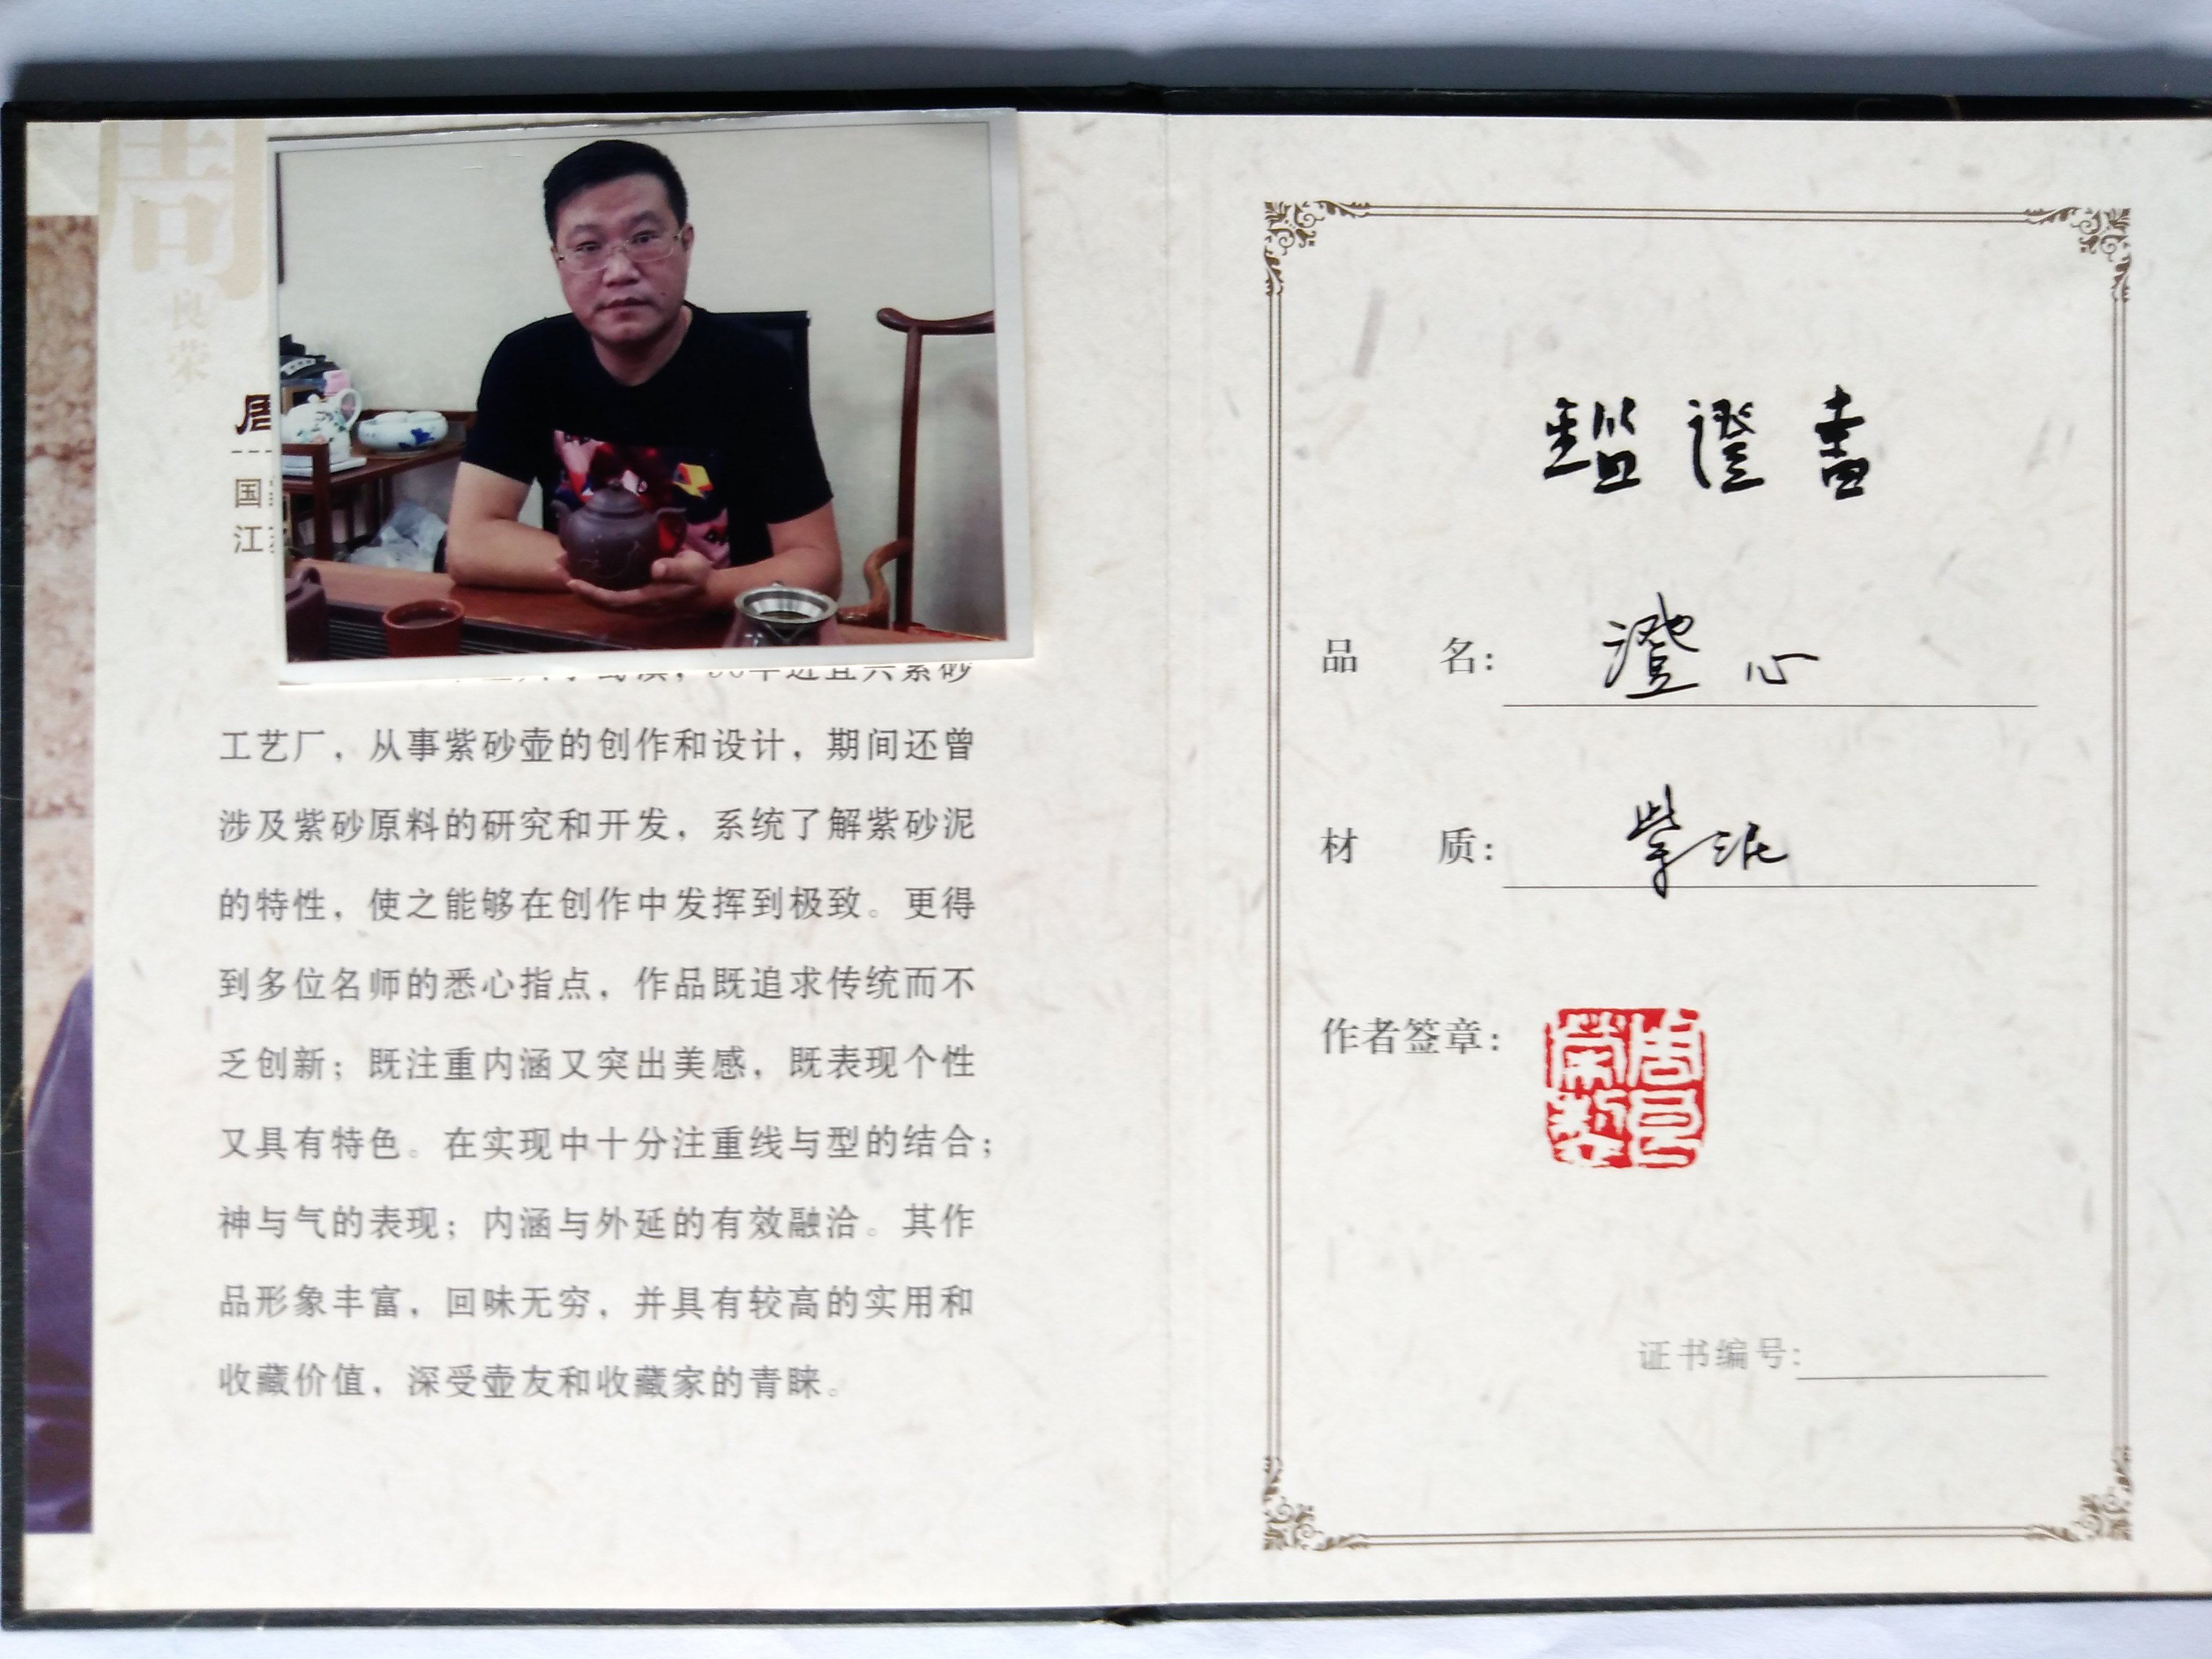 周
良荣
国
江
工艺厂，从事紫砂壶的创作和设计，期间还曾
涉及紫砂原料的研究和开发，系统了解紫砂泥
的特性，使之能够在创作中发挥到极致。更得
到多位名师的悉心指点，作品既追求传统而不
乏创新；既注重内涵又突出美感，既表现个性
又具有特色。在实现中十分注重线与型的结合；
神与气的表现；内涵与外延的有效融洽。其作
品形象丰富，回味无穷，并具有较高的实用和
收藏价值，深受壶友和收藏家的青睐。
鑑證書
品名：澄心
材质：紫泥
作者签章：
周良荣製
证书编号：